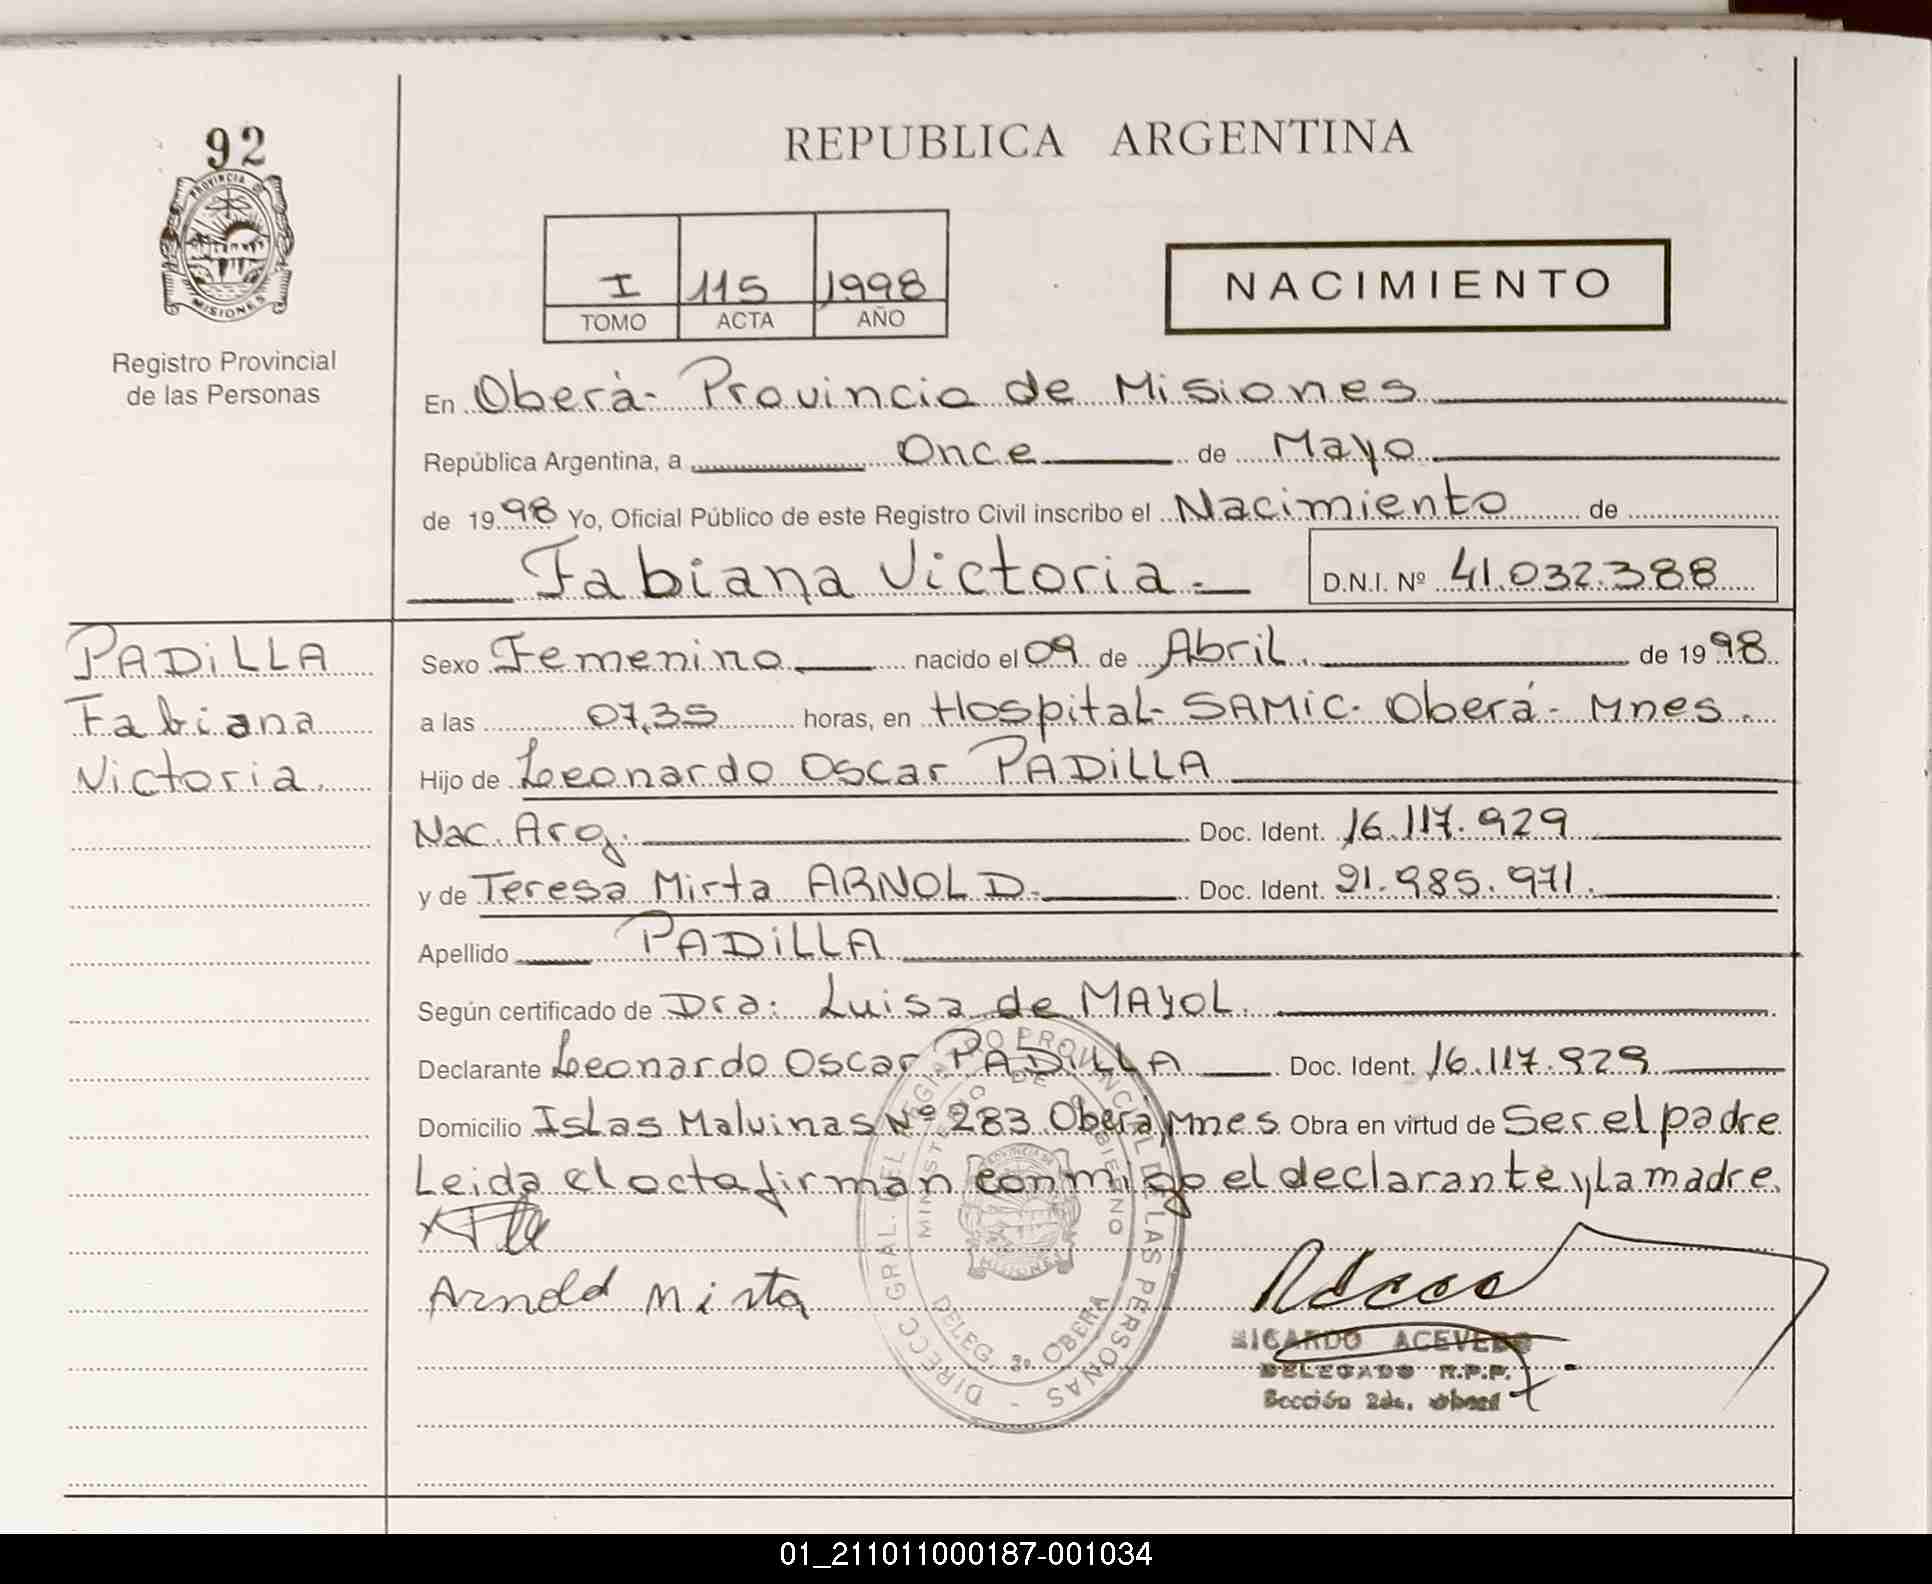 92
PROVINCIA DE
MISIONES
Registro Provincial
de las Personas
REPUBLICA ARGENTINA
I 115 1998
TOMO ACTA AÑO
NACIMIENTO
En Oberá- Provincia de Misiones
República Argentina, a Once de Mayo
de 1998 Yo, Oficial Público de este Registro Civil inscribo el Nacimiento de
Fabiana Victoria.- D.N.I. Nº 41.032.388
PADiLLA
Fabiana
Victoria.
Sexo Femenino nacido el 09 de Abril. de 1998
a las 07,35 horas, en Hospital- SAMiC. Oberá- Mnes.
Hijo de Leonardo Oscar PADiLLA
Nac. Arg. Doc. Ident. 16.117.929
y de Teresa Mirta ARNOLD.- Doc. Ident. 21.985.971.
Apellido PADiLLA
Según certificado de Dra: Luisa de MAYOL.
Declarante Leonardo Oscar PADiLLA Doc. Ident. 16.117.929
Domicilio Islas Malvinas Nº 283 Oberá, Mnes Obra en virtud de Ser el padre
Leida el acta firman conmigo el declarante y la madre.
Arnold Mirta
DIRECC. GRAL. DEL REGISTRO PROVINCIAL DE LAS PERSONAS -
MINISTERIO DE GOBIERNO
PROVINCIA DE
MISIONES
DELEG. 2ª OBERA
RICARDO ACEVEDO
DELEGADO R.P.P.
Sección 2da. Oberá
01_211011000187-001034